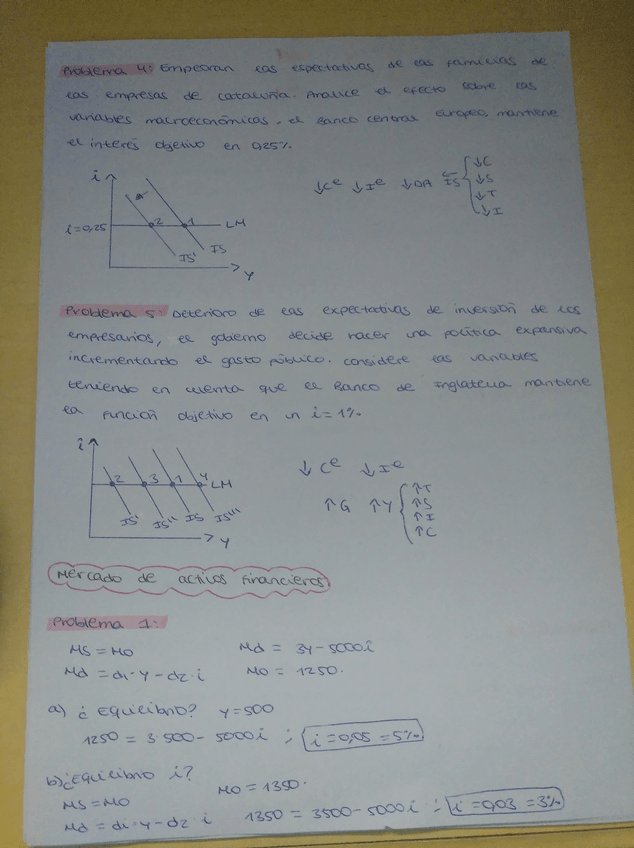 Problema 4: Empeoran las espectativas de las familias de
las empresas de cataluña. Analice el efecto sobre las
variables macroeconómicas. el Banco central Europeo, mantiene
el interés objetivo en 0,25%.
i
i=0,25
2
1
LM
IS
IS'
Y
↓Cᵉ ↓Iᵉ ↓DA ←IS
↓C
↓S
↓T
↓I
Problema 5: Deterioro de las expectativas de inversión de los
empresarios, el gobierno decide hacer una política expansiva
incrementando el gasto público. considere las variables
teniendo en cuenta que el Banco de Inglaterra mantiene
la función objetivo en un i=1%.
i
2 3 1 4 LM
IS' IS'' IS IS'''
Y
↓Cᵉ ↓Iᵉ
↑G ↑Y
↑T
↑S
↑I
↑C
Mercado de activos financieros.
Problema 1:
MS = MO Md = 3Y - 5000i
Md = d1·Y - d2·i MO = 1250.
a) ¿Equilibrio? Y=500
1250 = 3·500 - 5000i ; i = 0,05 = 5%
b) ¿Equilibrio i? MO = 1350.
MS = MO
Md = d1·Y - d2·i 1350 = 3·500 - 5000i ; i = 0,03 = 3%